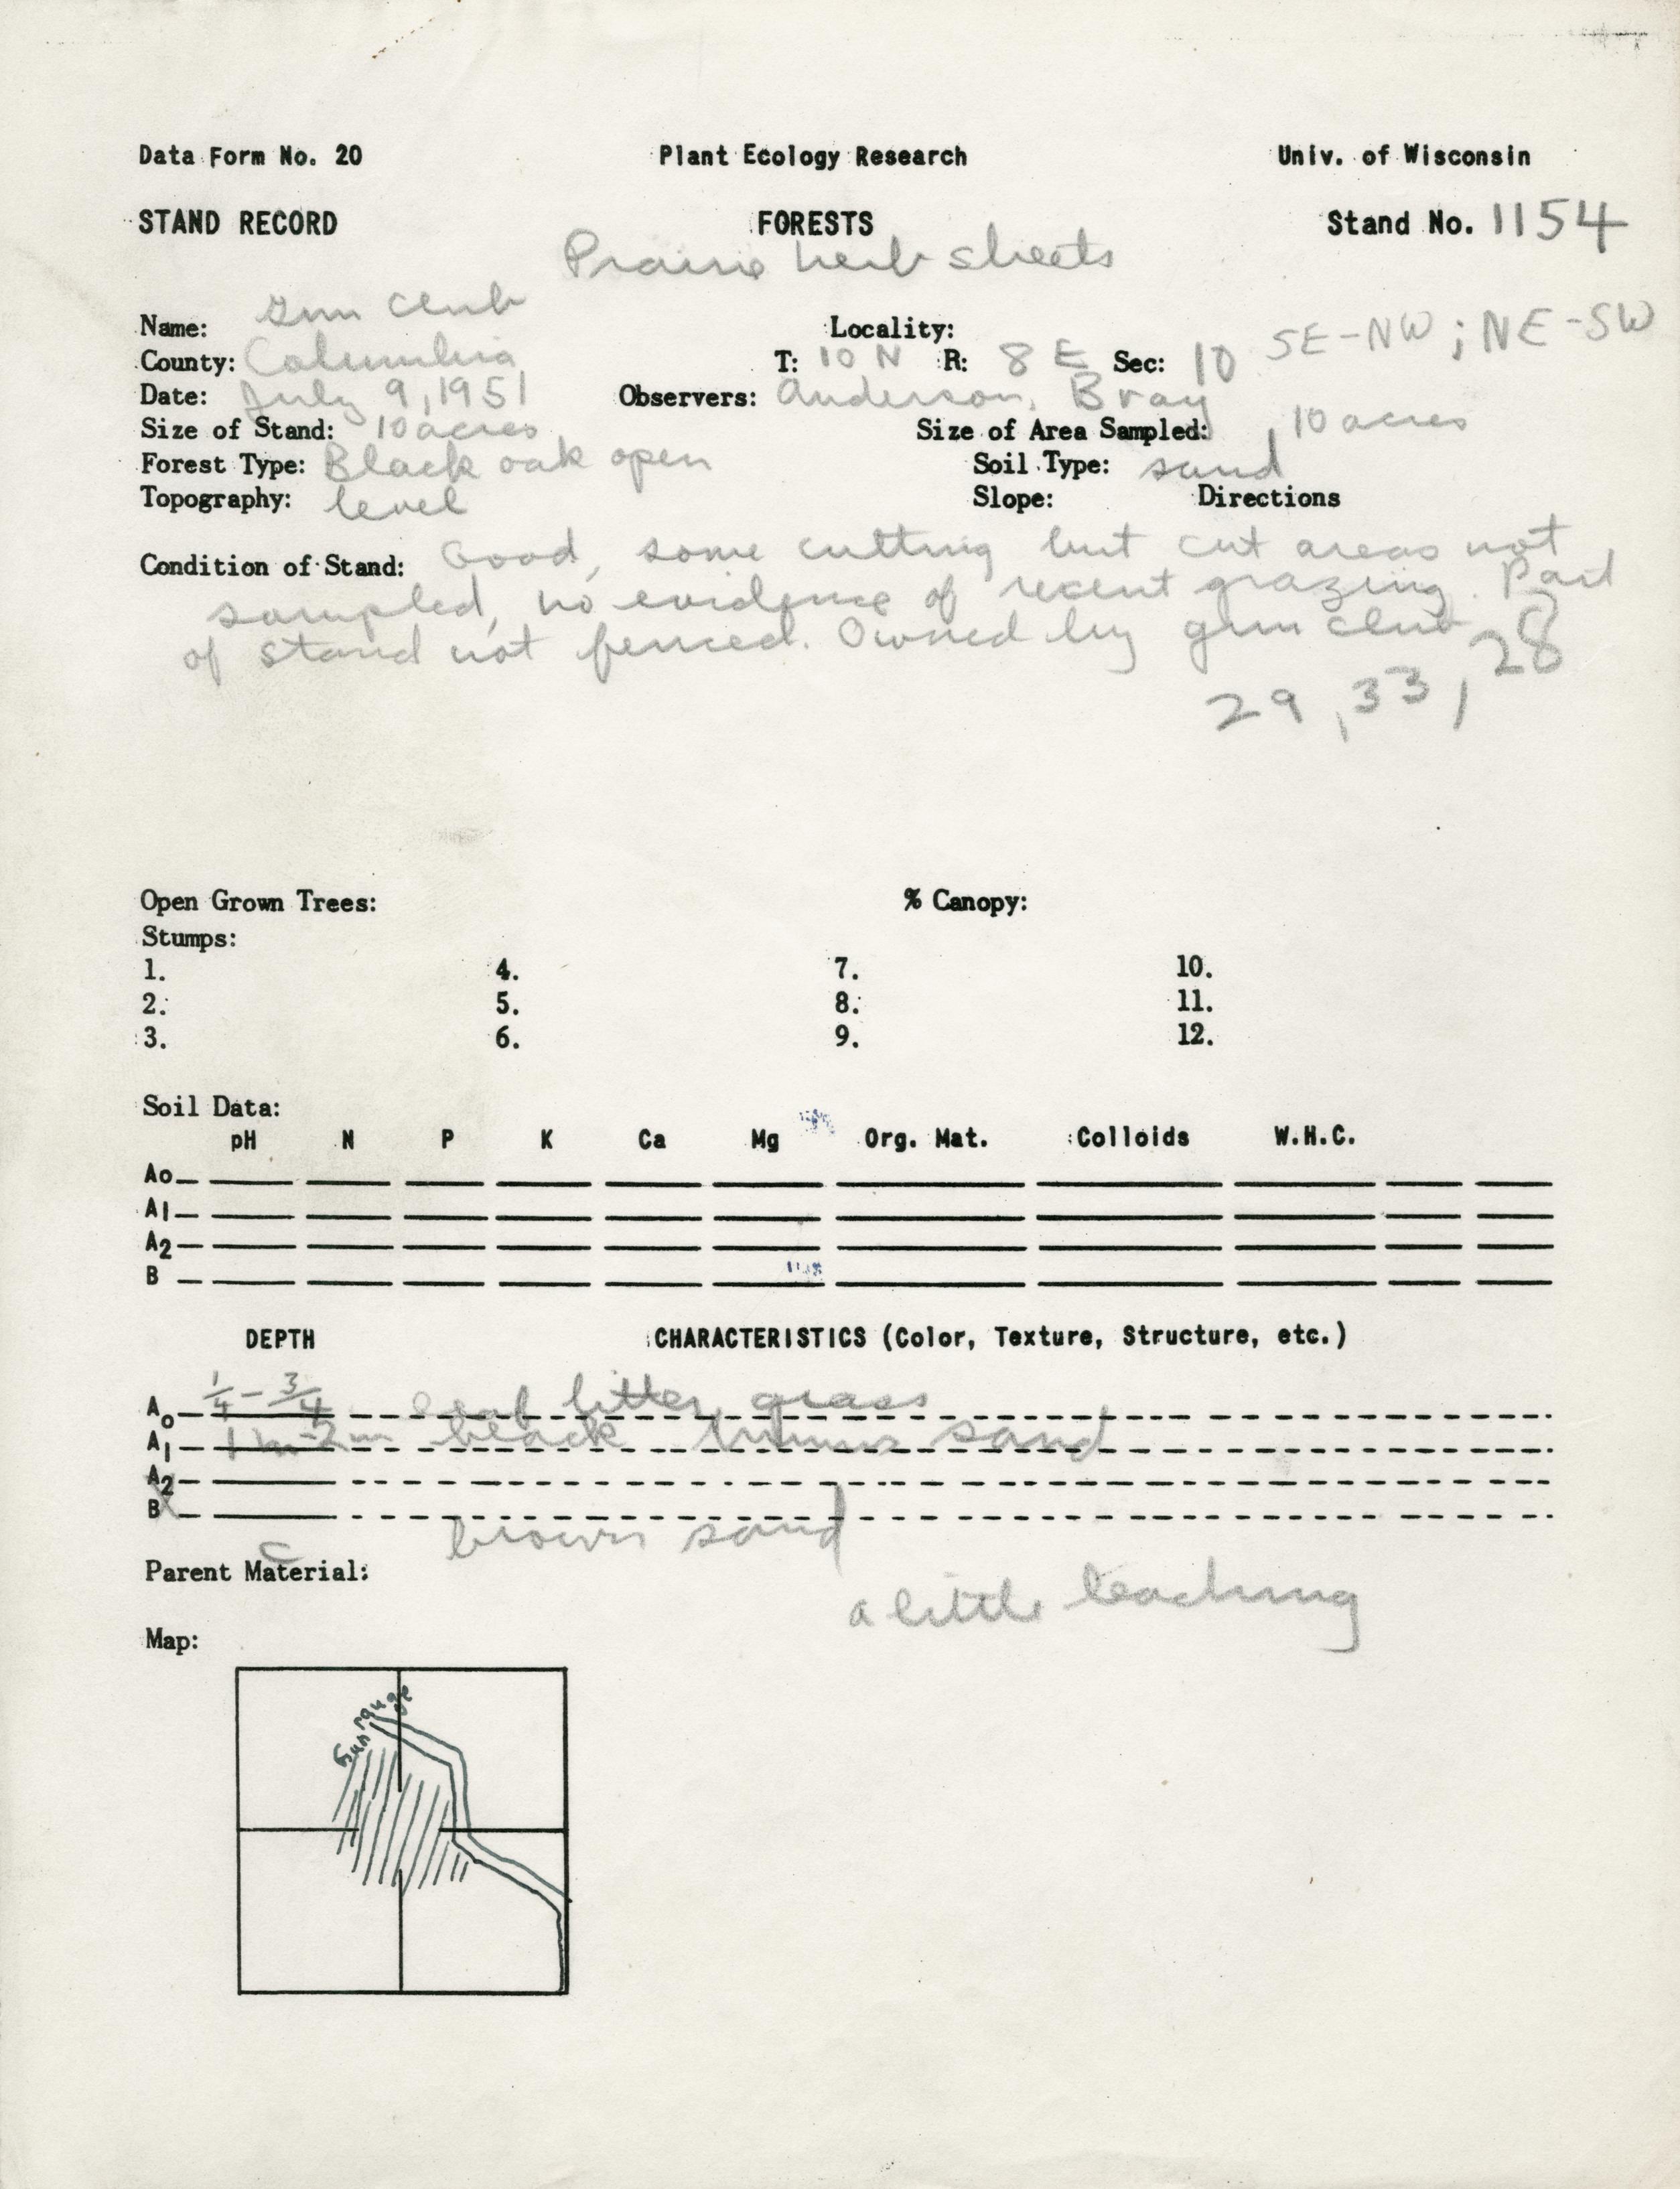 Data Form No. 20 Plant Ecology Research Univ. of Wisconsin
STAND RECORD FORESTS Stand No. 1154
Prairie herb sheets
Name: Gun Club Locality:
County: Columbia T: 10 N R: 8 E Sec: 10 SE-NW; NE-SW
Date: July 9, 1951 Observers: Anderson, Bray
Size of Stand: 10 acres Size of Area Sampled: 10 acres
Forest Type: Black oak open Soil Type: sand
Topography: level Slope: Directions
Condition of Stand: Good, some cutting but cut areas not
sampled, no evidence of recent grazing. Part
of stand not fenced. Owned by gun club
29, 33, 28
Open Grown Trees: % Canopy:
Stumps:
1. 4. 7. 10.
2. 5. 8. 11.
3. 6. 9. 12.
Soil Data:
pH N P K Ca Mg Org. Mat. Colloids W.H.C.
Ao
A1
A2
B
DEPTH CHARACTERISTICS (Color, Texture, Structure, etc.)
Ao 1/4 - 3/4 leaf litter, grass
A1 1 in-2in black humus sand
A2
B
C brown sand
Parent Material:
a little leaching
Map:
Gun range